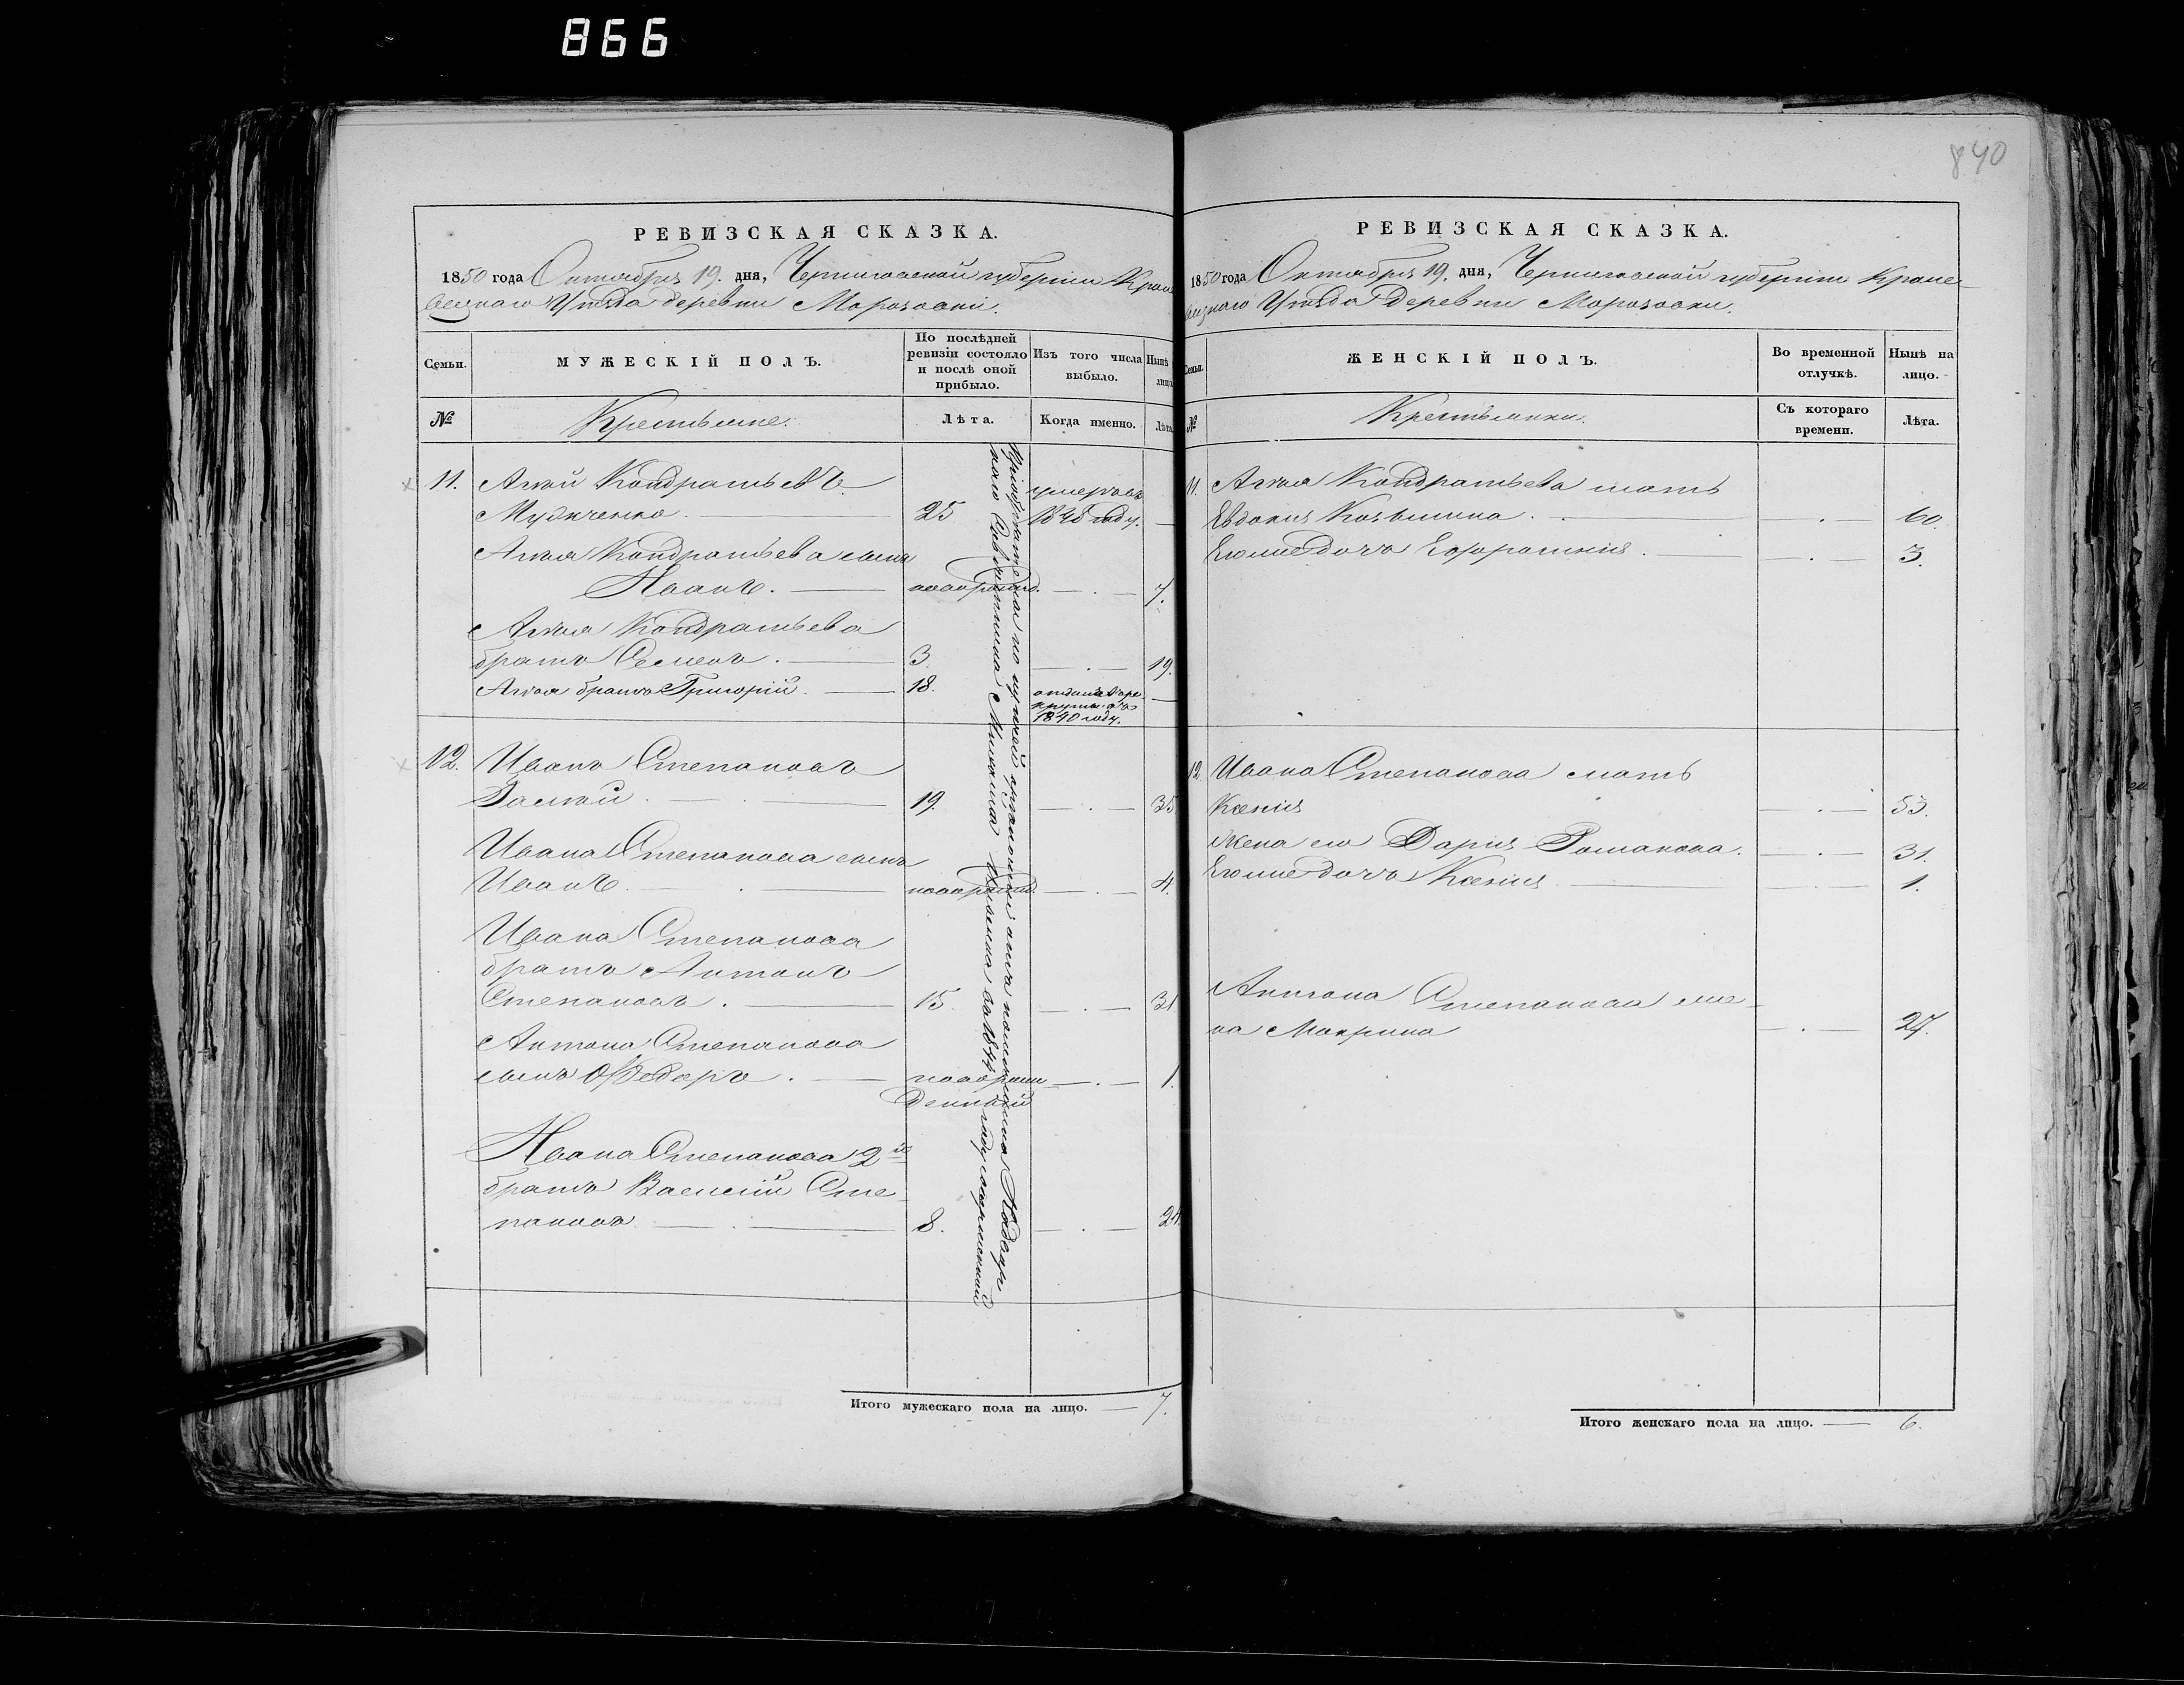 866
840
РЕВИЗСКАЯ СКАЗКА.
1850 года Октября 19. дня, Черниговской губерніи Кроле
вецкаго Уѣзда деревни Морозовки.
Семьи.
МУЖЕСКІЙ ПОЛЪ.
По послѣдней
ревизіи состояло
и послѣ оной
прибыло.
Изъ того числа
выбыло.
Нынѣ
лицо
№
Крестьяне.
Лѣта.
Когда именно.
Лѣта
11. Кондратьевъ
25
умеръ въ
1848 году.
Кондратьева сынъ
Иванъ. новорожд. 7.
Кондратьева
братъ Семенъ. 3 19.
братъ Григорій. 18.
отданъ въ ре
круты въ
1840 году.
12. Иванъ Степановъ
19. 35
Ивана Степанова сынъ
Иванъ. новорожд. 4.
Ивана Степанова
братъ Антонъ
Степановъ. 15. 31
Антона Степанова
сынъ Федоръ. новорож
денный 1.
Ивана Степанова 2й
братъ Василій Сте
пановъ 8. 24
Итого мужескаго пола на лицо. 7.
РЕВИЗСКАЯ СКАЗКА.
1850 года Октября 19. дня, Черниговской губерніи Кроле
вецкаго Уѣзда деревни Морозовки.
Семьи.
ЖЕНСКІЙ ПОЛЪ.
Во временной
отлучкѣ.
Нынѣ на
лицо.
№
Крестьянки.
Съ котораго
времени.
Лѣта.
11. Кондратьева мать
Евдокія Козьмина. 60.
Его же дочь Ефросинія. 3.
12. Ивана Степанова мать
Ксенія 53.
Жена его Дарія Романова. 31.
Его же дочь Ксенія 1.
Антона Степанова же
на Макрина 27.
Итого женскаго пола на лицо. 6.